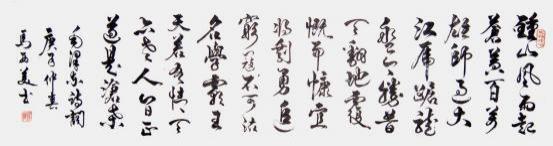 鍾山風雨起
蒼黃百萬
雄師過大
江虎踞龍
盤今勝昔
天翻地覆
慨而慷宜
將剩勇追
窮寇不可沽
名學霸王
天若有情天
亦老人間正
道是滄桑
毛澤東詩詞
庚子仲春
馬 書